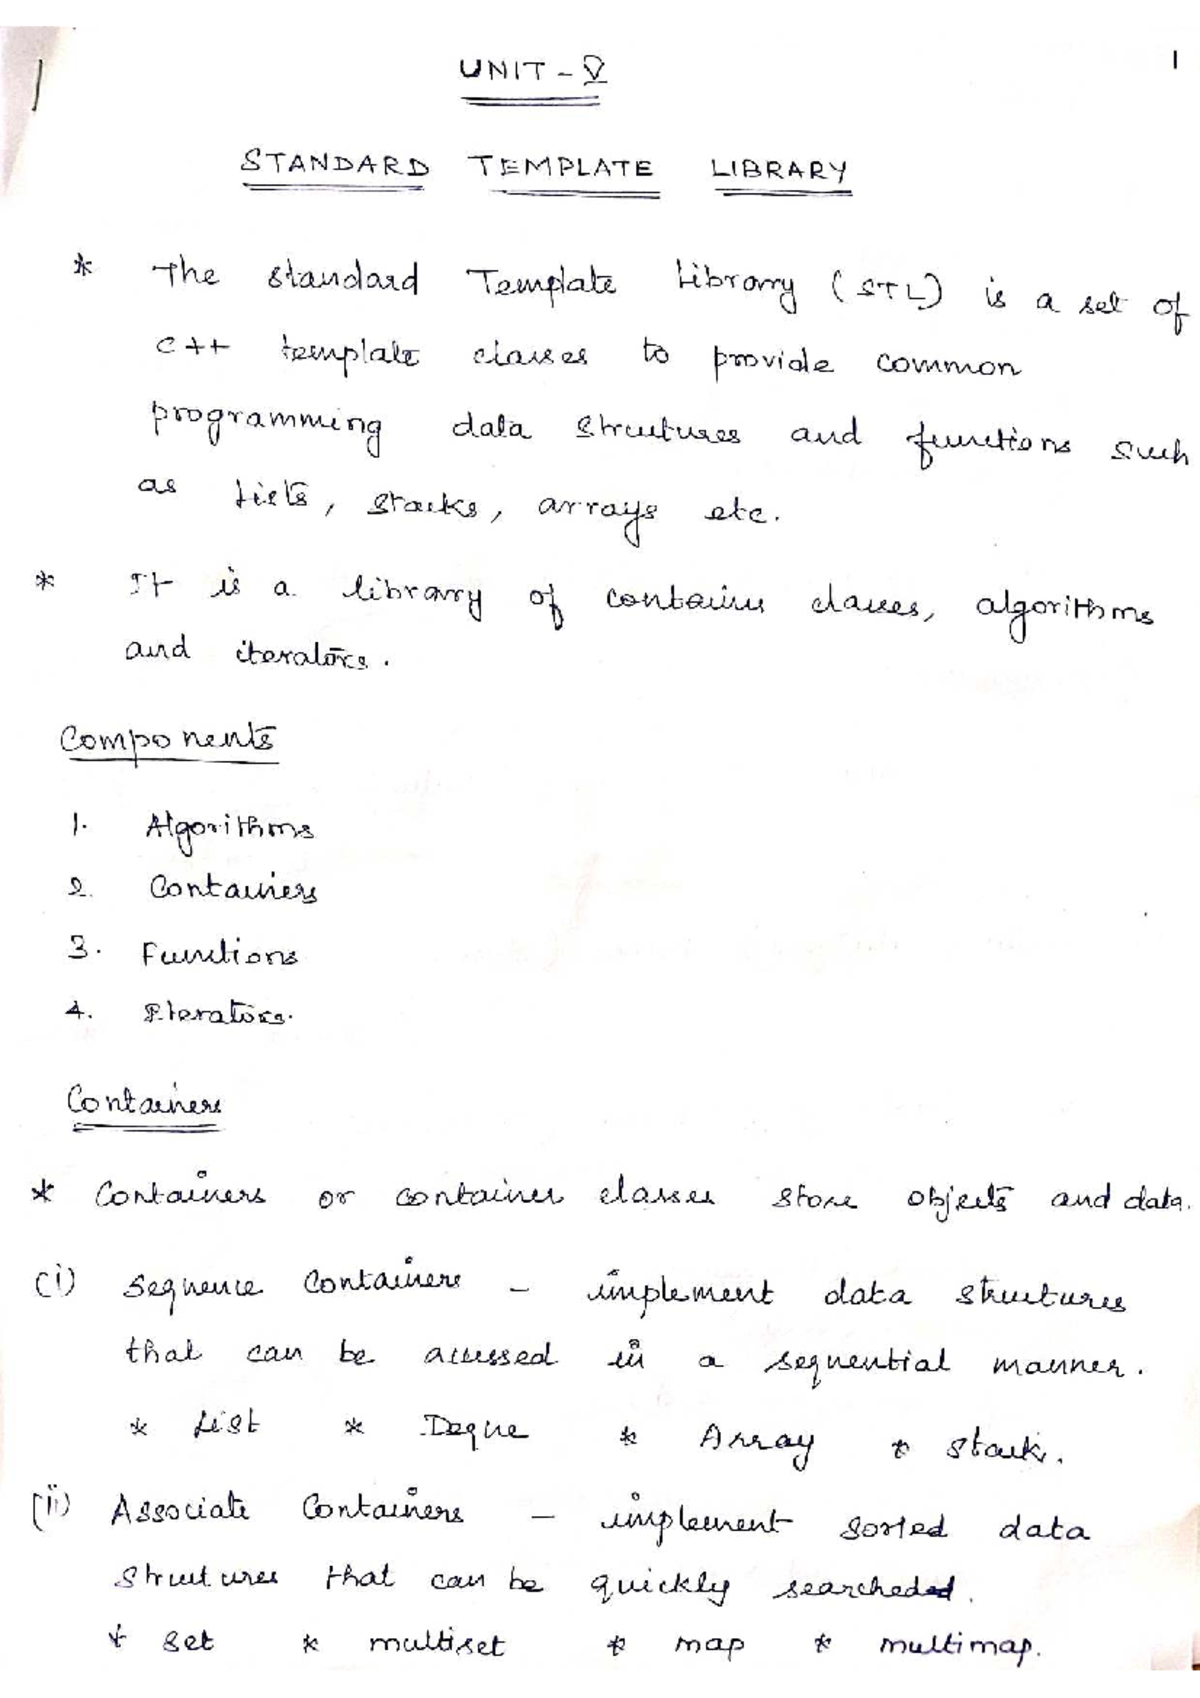 1
UNIT - V
STANDARD TEMPLATE LIBRARY
* The standard Template Library (STL) is a set of
C++ template classes to provide common
programming data structures and functions such
as Lists, stacks, arrays etc.
* It is a library of contains classes, algorithms
and iterators.
Components
1. Algorithms
2. Containers
3. Functions
4. Iterators.
Containers
* Containers or container classes store objects and data.
(i) Sequence Containers - implement data structures
that can be accessed in a sequential manner.
* List * Deque * Array * stack.
(ii) Associate Containers - implement sorted data
structures that can be quickly searched.
* set * multiset * map * multimap.